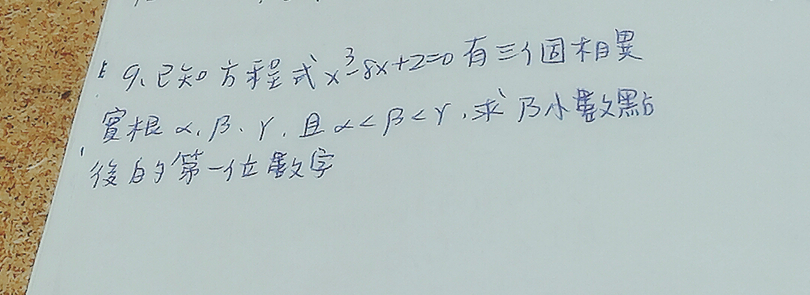 9、已知方程式x³-8x+2=0有三個相異
實根α、β、γ，且α<β<γ，求β小數點
後的第一位數字